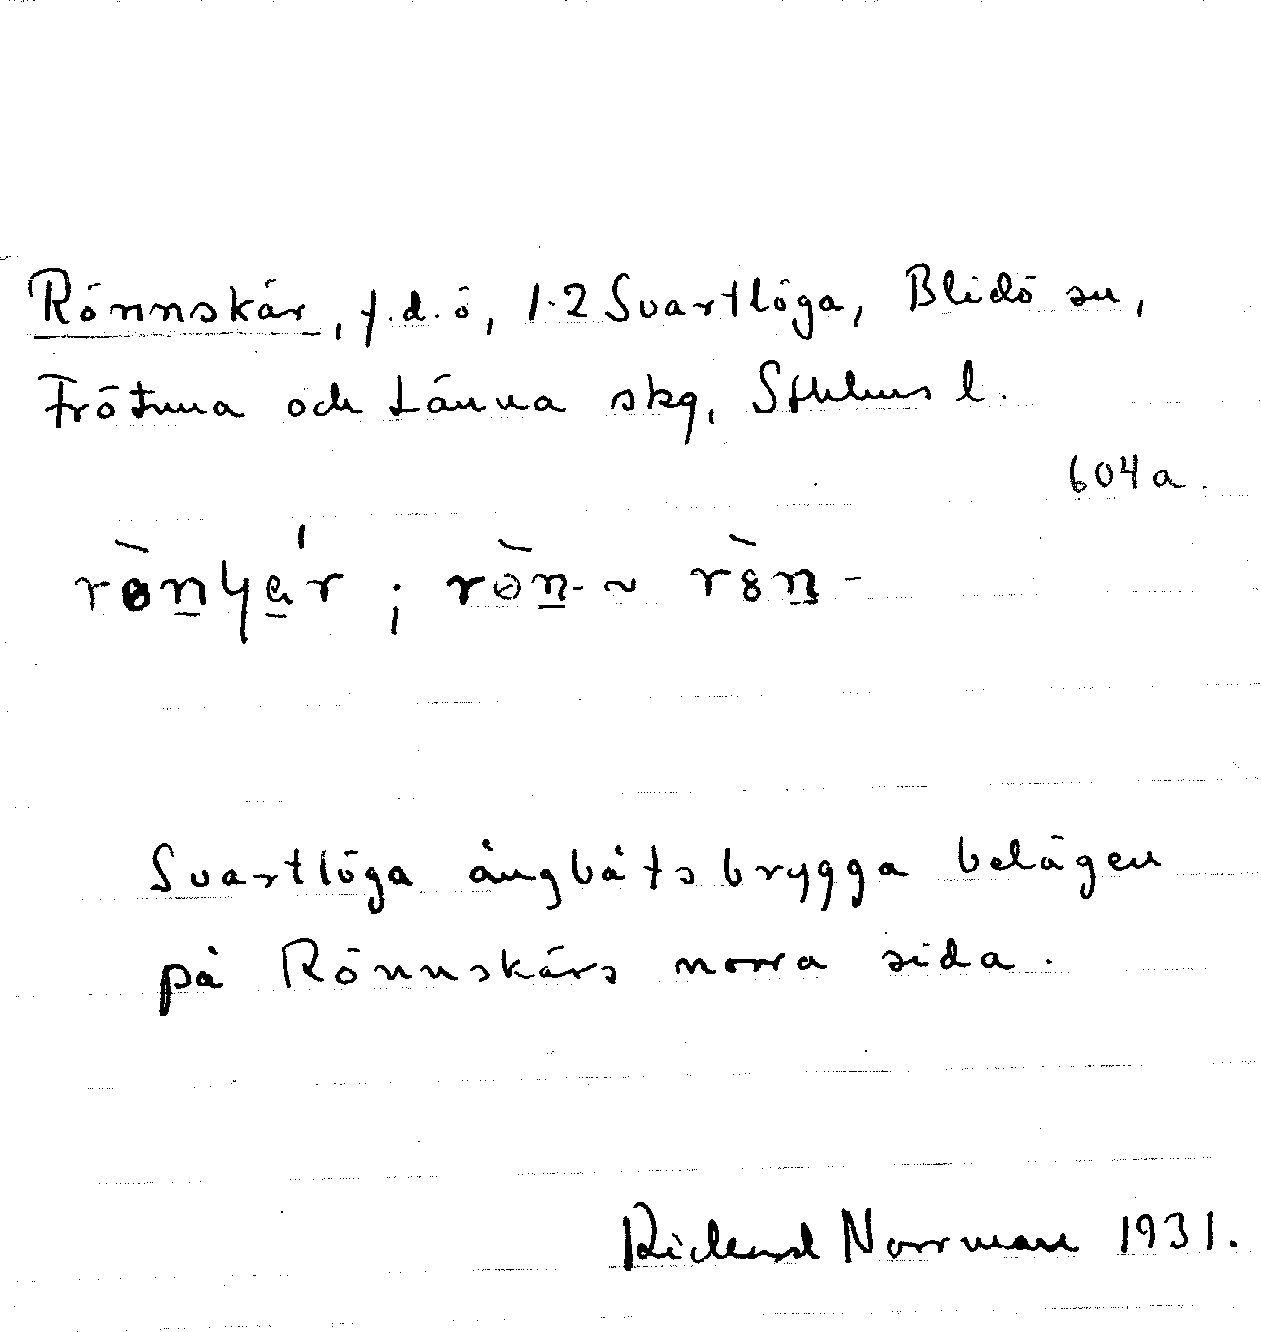 Rönnskär, f.d. ö, 1-2 Svartlöga, Blidö sn,
Frötuna och Länna skg, Sthlms l.
604a.
rö̀nɥä́r ; rö̀n- ~ rö̀n-
Svartlöga ångbåtsbrygga belägen
på Rönnskärs norra sida.
Rickard Norrman 1931.